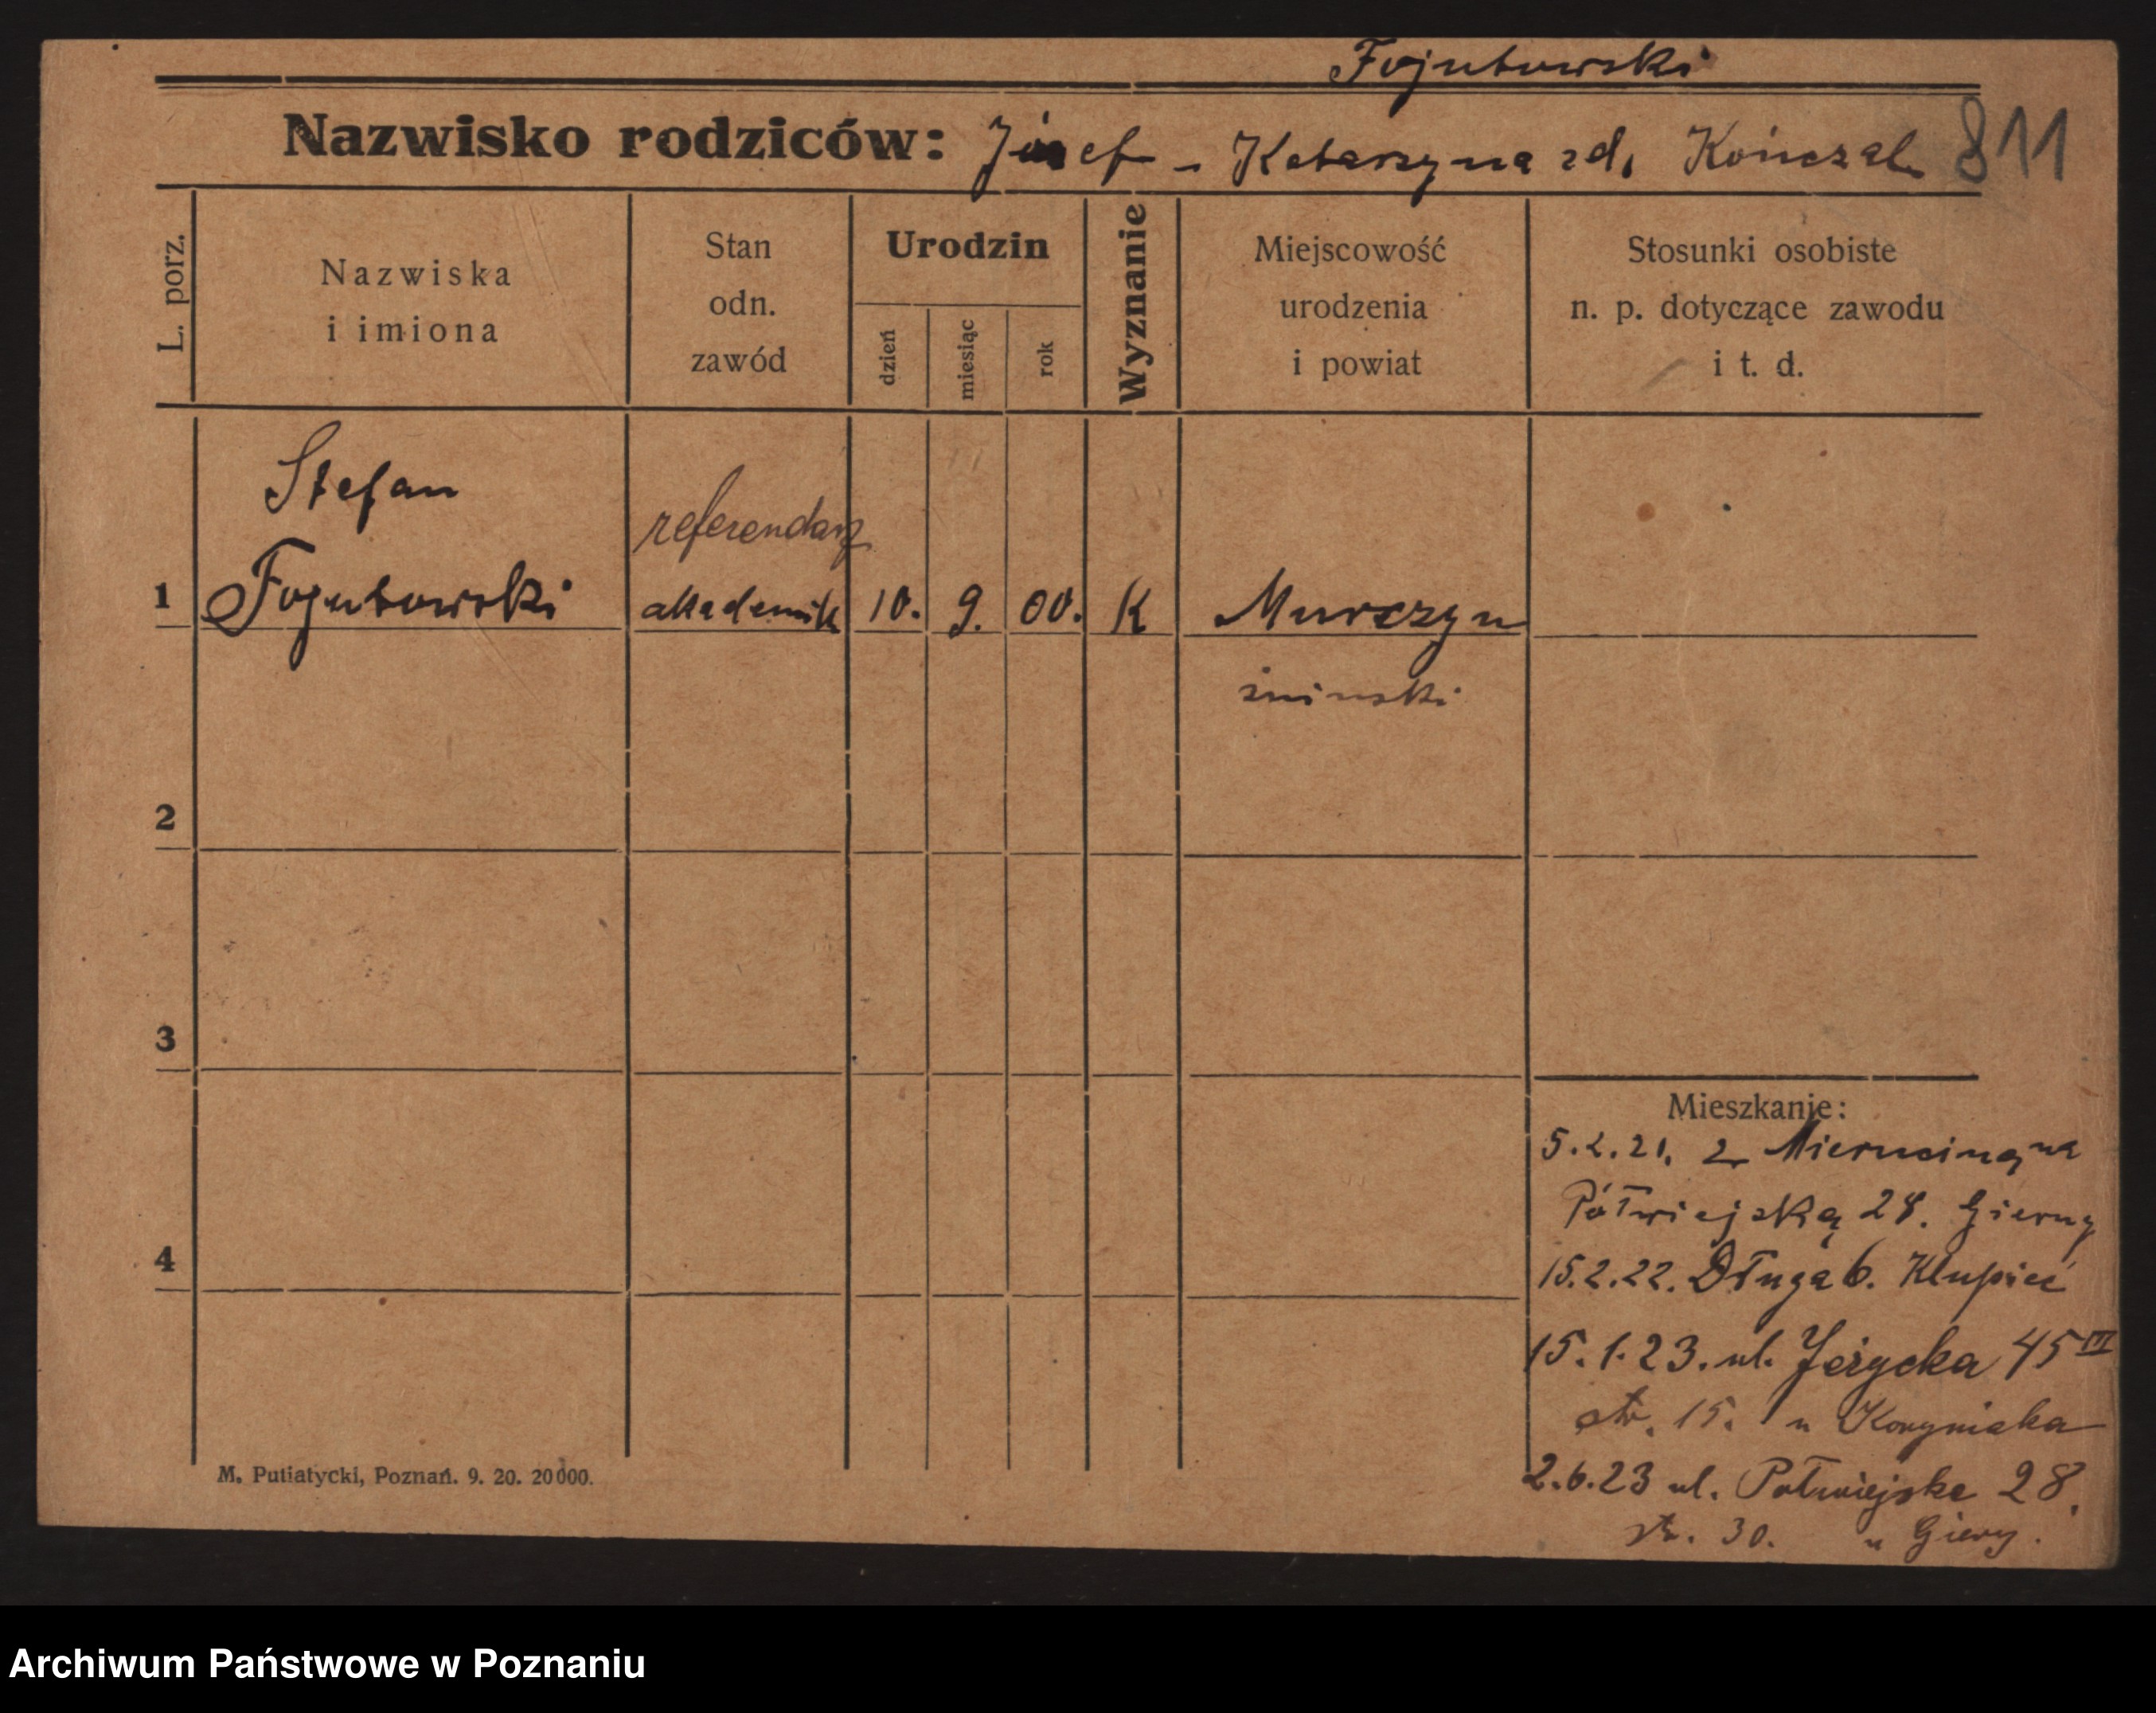 Fojutowski
Nazwisko rodziców: Józef - Katarzyna zd. Kończal 811
L. porz.
Nazwiska
i imiona
Stan
odn.
zawód
Urodzin
dzień
miesiąc
rok
Wyznanie
Miejscowość
urodzenia
i powiat
Stosunki osobiste
n. p. dotyczące zawodu
i t. d.
Stefan
referendarz
1 Fojutowski akademik 10. 9. 00. K Murczyn
żniński
2
3
4
Mieszkanie:
5.2.21. z Mierucina na
Półwiejską 28. Gierny
15.2.22. Długa 6. Klupieć
15.1.23. ul. Jeżycka 45 III
str. 15. u
2.6.23 ul. Półwiejska 28.
str. 30. u Giery.
M. Putiatycki, Poznań. 9. 20. 20000.
Archiwum Państwowe w Poznaniu